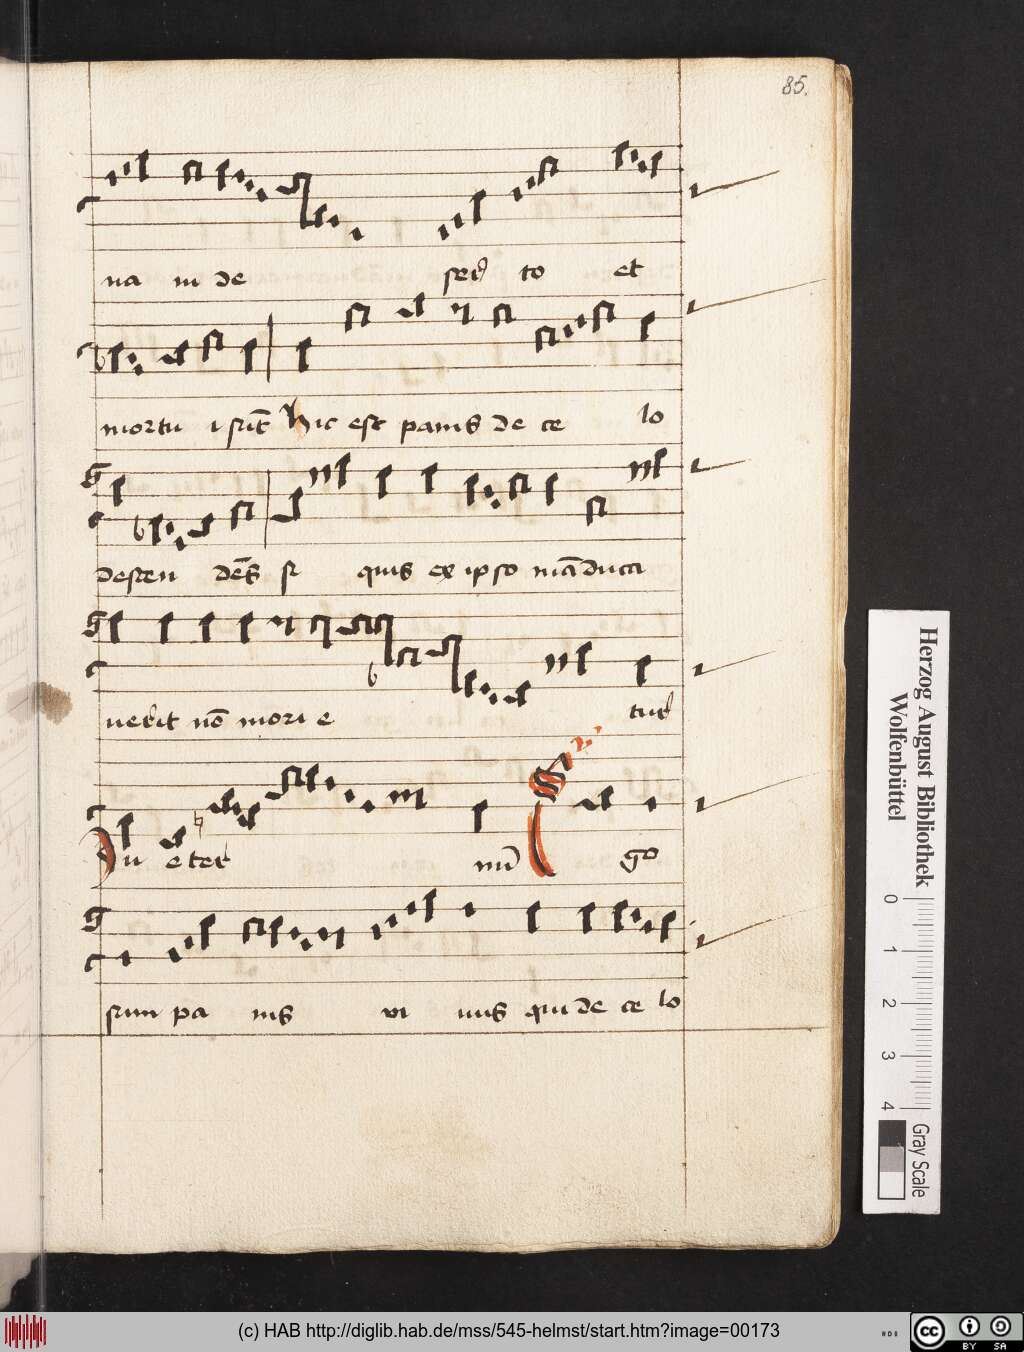 85.
na m de serͥ to et
mortu i sūt Hic est panis de ce lo
descen dēs si quis ex ipso mādu ca
uerit nō mori e tur
In eter nū Ego
sum pa nis vi uus qui de ce lo
Herzog August Bibliothek
Wolfenbüttel
0 1 2 3 4
Gray Scale
(c) HAB http://diglib.hab.de/mss/545-helmst/start.htm?image=00173
cc BY SA